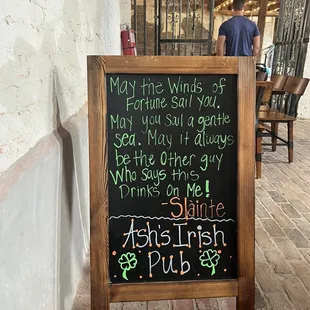 May the Winds of
Fortune Sail you.
May you sail a gentle
Sea. May it always
be the Other guy
Who says this
Drinks on Me!
-Slàinte
Ash's Irish
Pub